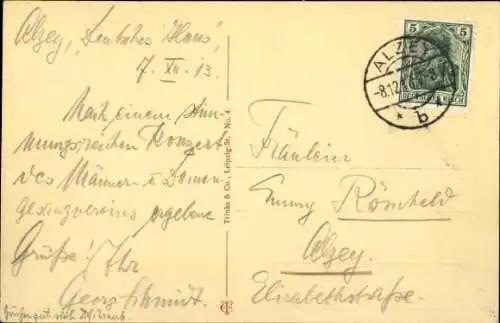 Alzey, "Deutsches Haus",
7. XII. 13.
Nach einem stim-
mungsreichen Konzert
des Männer- u. Damen-
gesangvereins ergebene
Grüße! Ihr
Georg Schmidt.
Trinks & Co., Leipzig-St., No. 4
5 5
DEUTSCHES REICH
ALZEY
-8.12.
* b *
Fräulein
Emmy Römheld
Alzey.
Elisabethstraße.